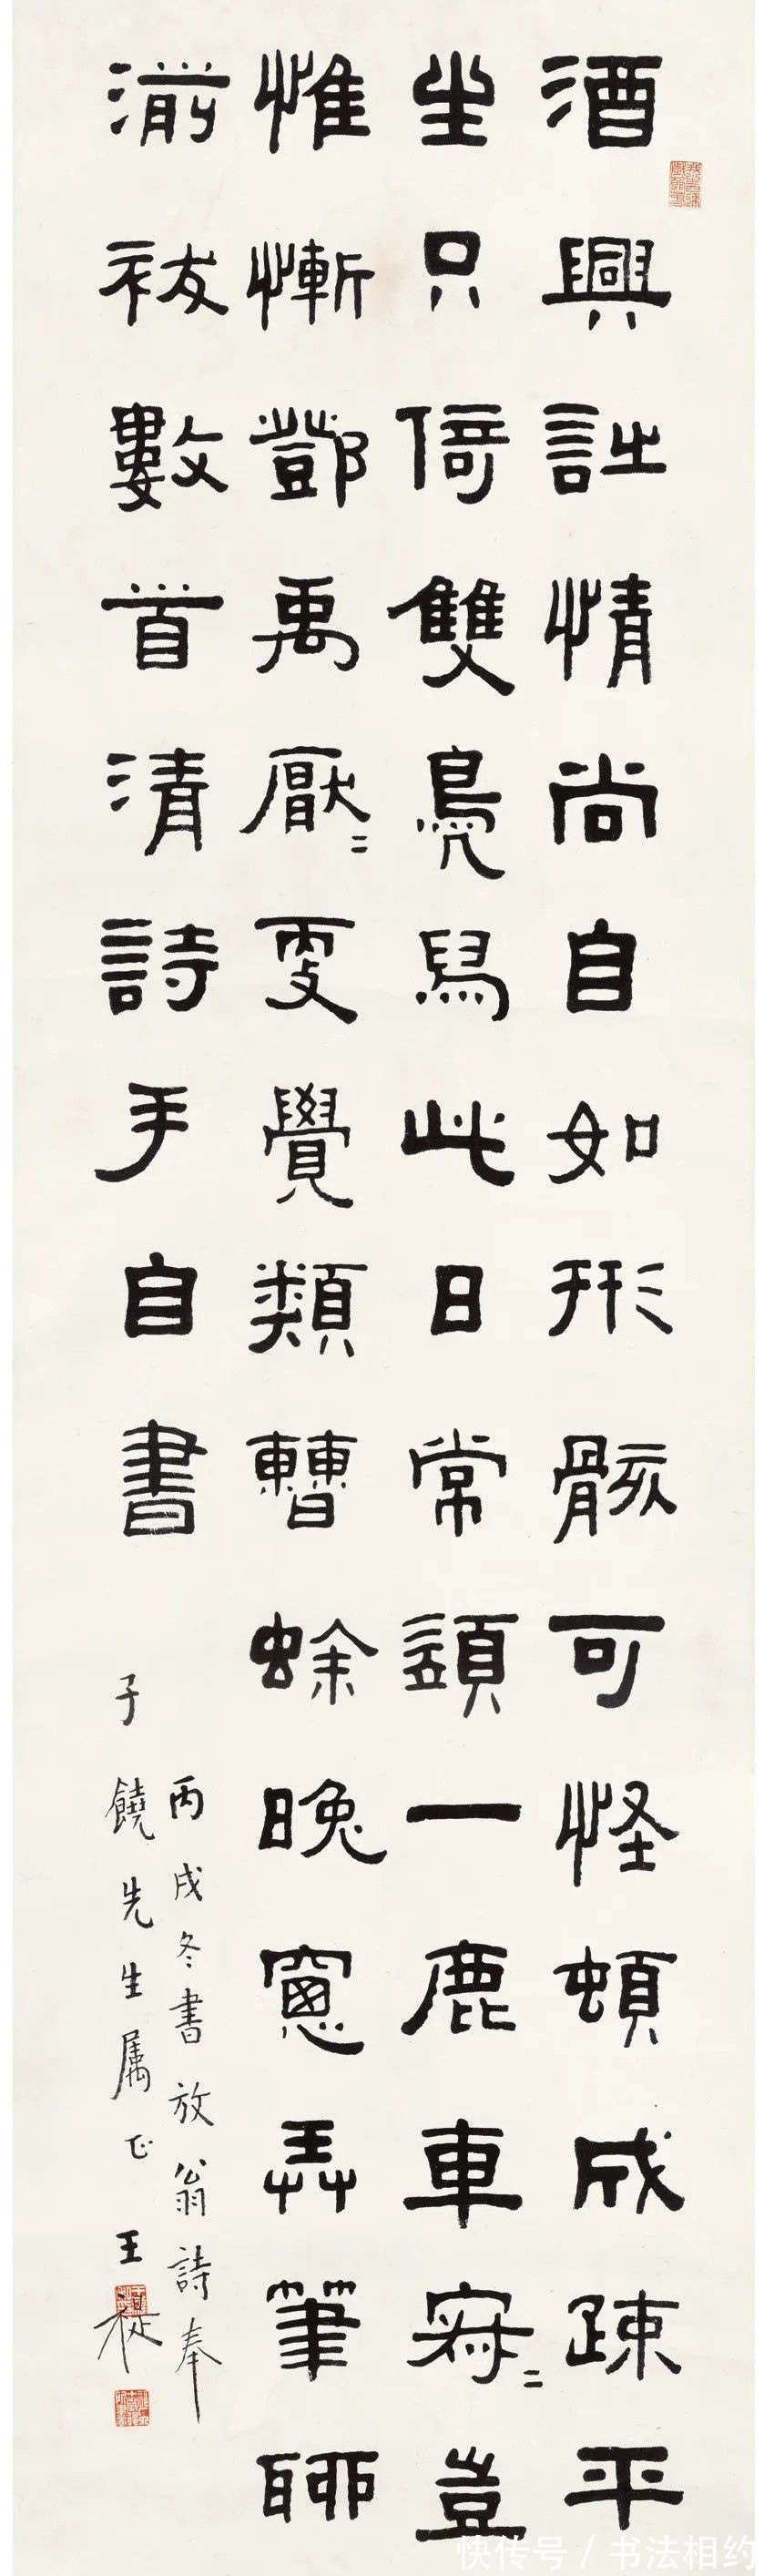 酒興詩情尚自如形骸可怪頓成疎平
坐只倚雙鳧舄此日常須一鹿車寂〻豈
惟慚鄧禹厭〻更覺類曹蜍晚窻弄筆聊
湔祓數首清詩手自書
丙戌冬書放翁詩奉
子饒先生属正 王禔
快传号 / 书法相约